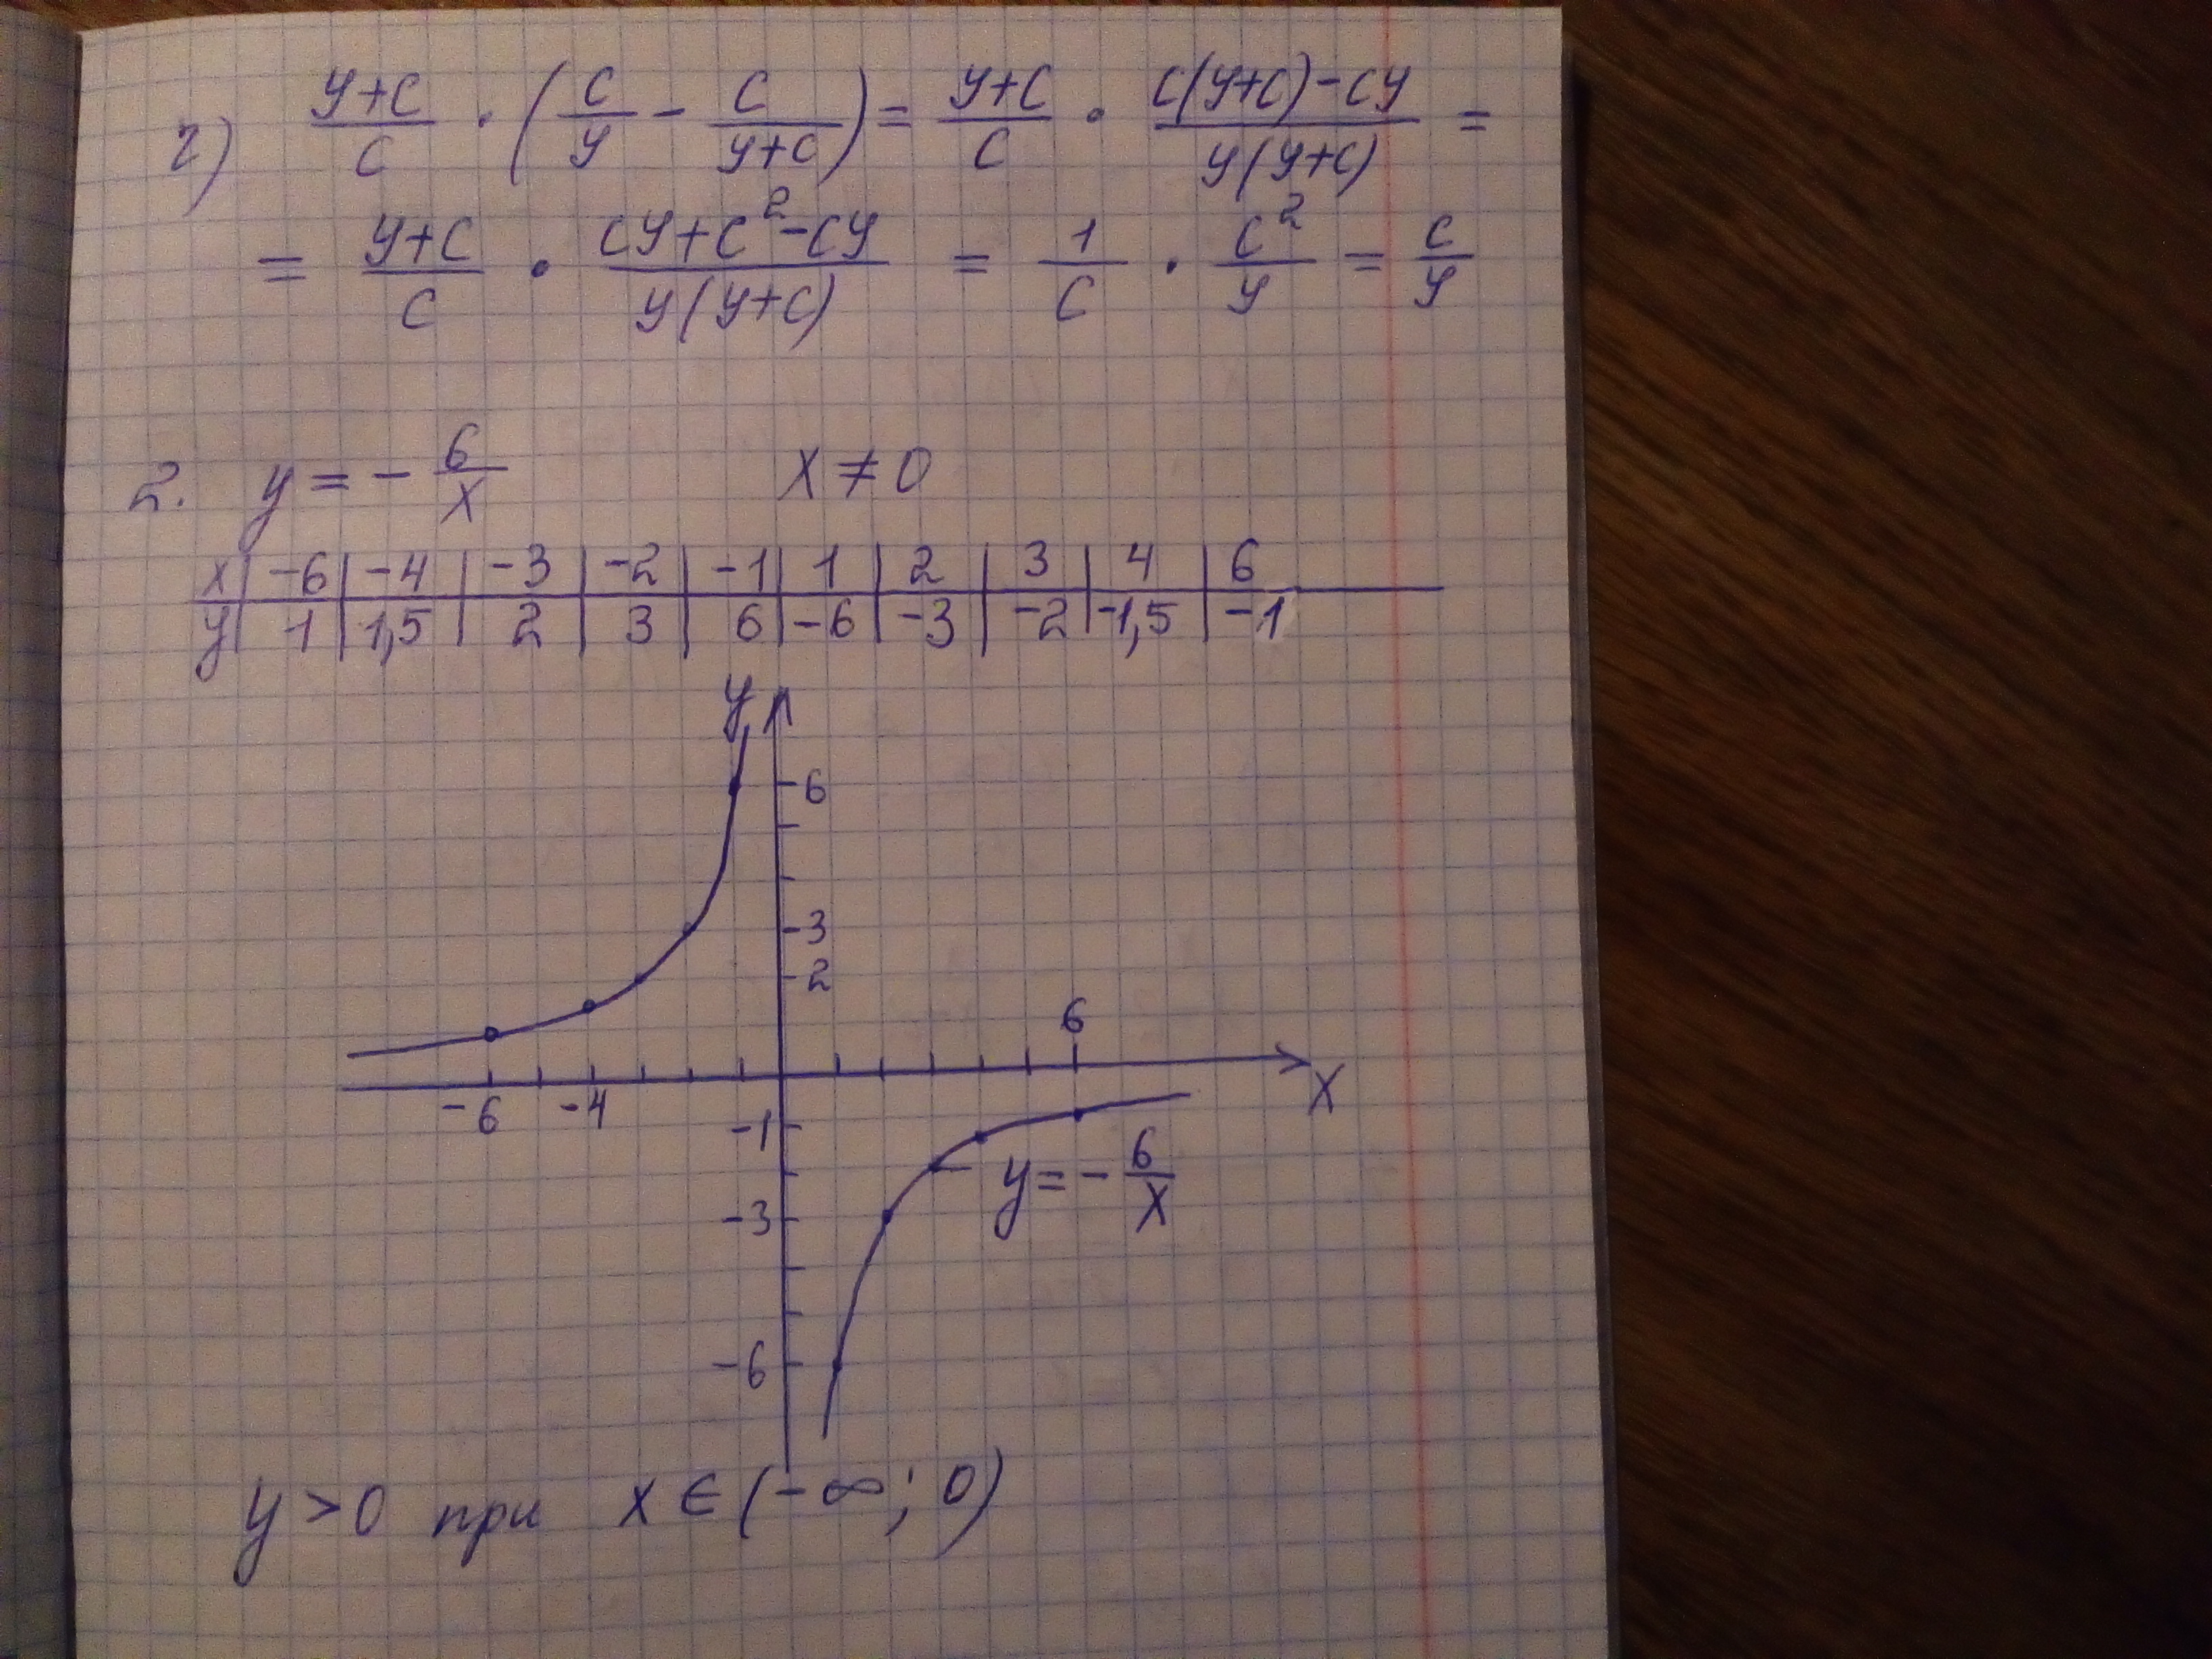 г) (y+c)/c · (c/y - c/(y+c)) = (y+c)/c · (c(y+c)-cy)/(y(y+c)) =
= (y+c)/c · (cy+c²-cy)/(y(y+c)) = 1/c · c²/y = c/y
2. y = - 6/x x ≠ 0
x | -6 | -4 | -3 | -2 | -1 | 1 | 2 | 3 | 4 | 6
y | 1 | 1,5 | 2 | 3 | 6 | -6 | -3 | -2 | -1,5 | -1
y
6
3
2
6
x
-6 -4
-1
y = - 6/x
-3
-6
y > 0 при x ∈ (-∞; 0)